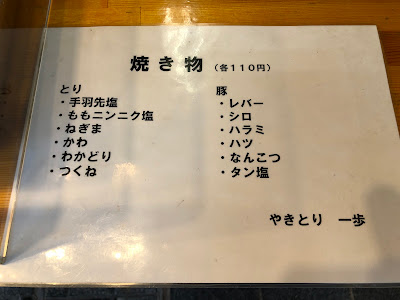 焼き物 (各110円)
とり
・手羽先塩
・ももニンニク塩
・ねぎま
・かわ
・わかどり
・つくね
豚
・レバー
・シロ
・ハラミ
・ハツ
・なんこつ
・タン塩
やきとり 一歩